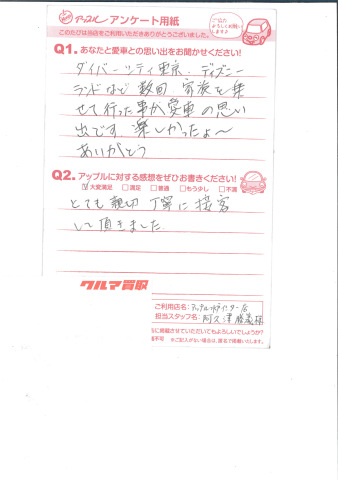 アップル アンケート用紙
このたびは当店をご利用いただきありがとうございました。
Q1. あなたと愛車との思い出をお聞かせください!
ダイバーシティ東京、ディズニー
ランドなど数回、家族を乗
せて行った事が愛車の思い
出です 楽しかったよ〜
ありがとう
Q2. アップルに対する感想をぜひお書きください!
大変満足 □満足 □普通 □もう少し □不満
とても親切 丁寧に接客
して頂きました
クルマ買取
ご利用店名:アップル
担当スタッフ名:阿久津 様
に掲載させていただいてもよろしいでしょうか?
不可 ※ご記入がない場合は、匿名で掲載いたします。